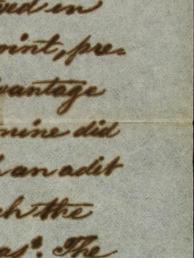 ved in
oint, pre-
vantage
mine did
an adit
the
The